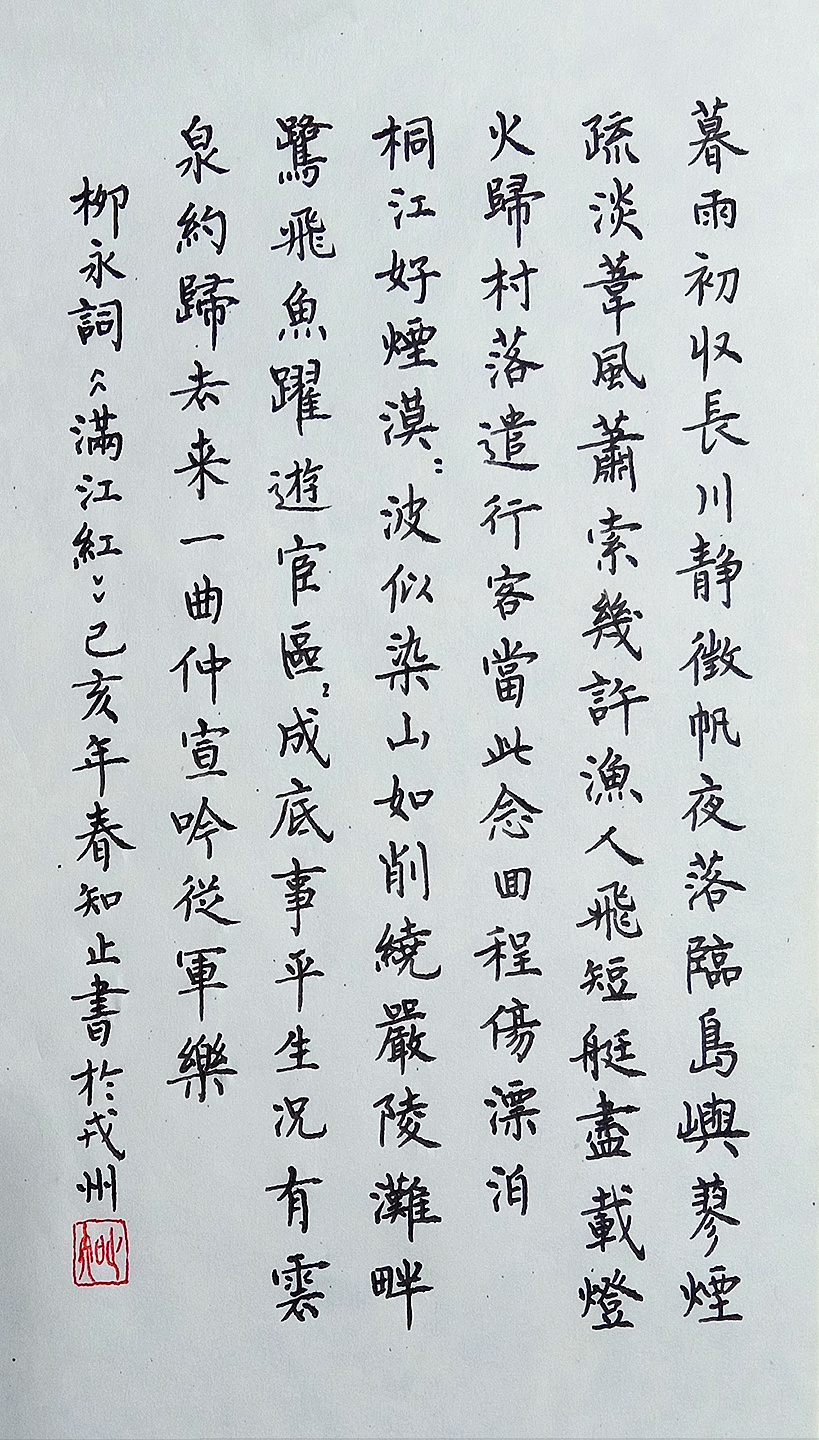 暮雨初收長川静徵帆夜落臨島嶼蓼煙
疏淡葦風蕭索幾許漁人飛短艇盡載燈
火歸村落遣行客當此念回程傷漂泊
桐江好煙漠〻波似染山如削繞嚴陵灘畔
鷺飛魚躍遊宦區〻成底事平生況有雲
泉約歸去来一曲仲宣吟從軍樂
柳永詞《滿江紅》己亥年春知止書於戎州